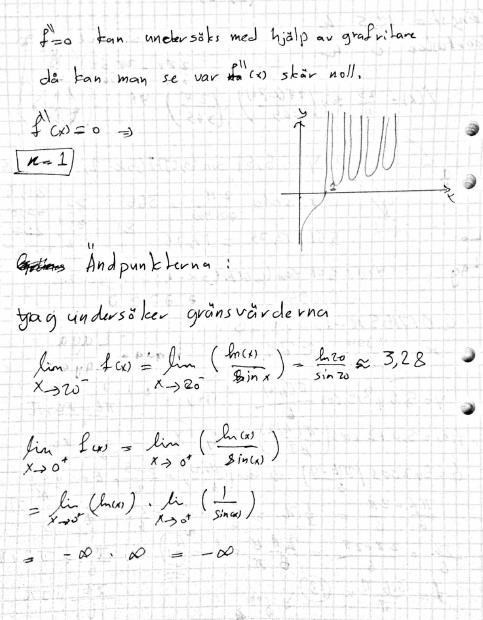 f''=0 kan undersöks med hjälp av grafritare
då kan man se var f''(x) skär noll.
f''(x) = 0 ⇒
x = 1
y
1
x
Ändpunkterna :
jag undersöker gränsvärderna
lim x→20⁻ f(x) = lim x→20⁻ (ln(x)/sin x) = ln20/sin20 ≈ 3,28
lim x→0⁺ f(x) = lim x→0⁺ (ln(x)/sin(x))
= lim x→0⁺ (ln(x)) · li x→0⁺ (1/sin(x))
= -∞ · ∞ = -∞